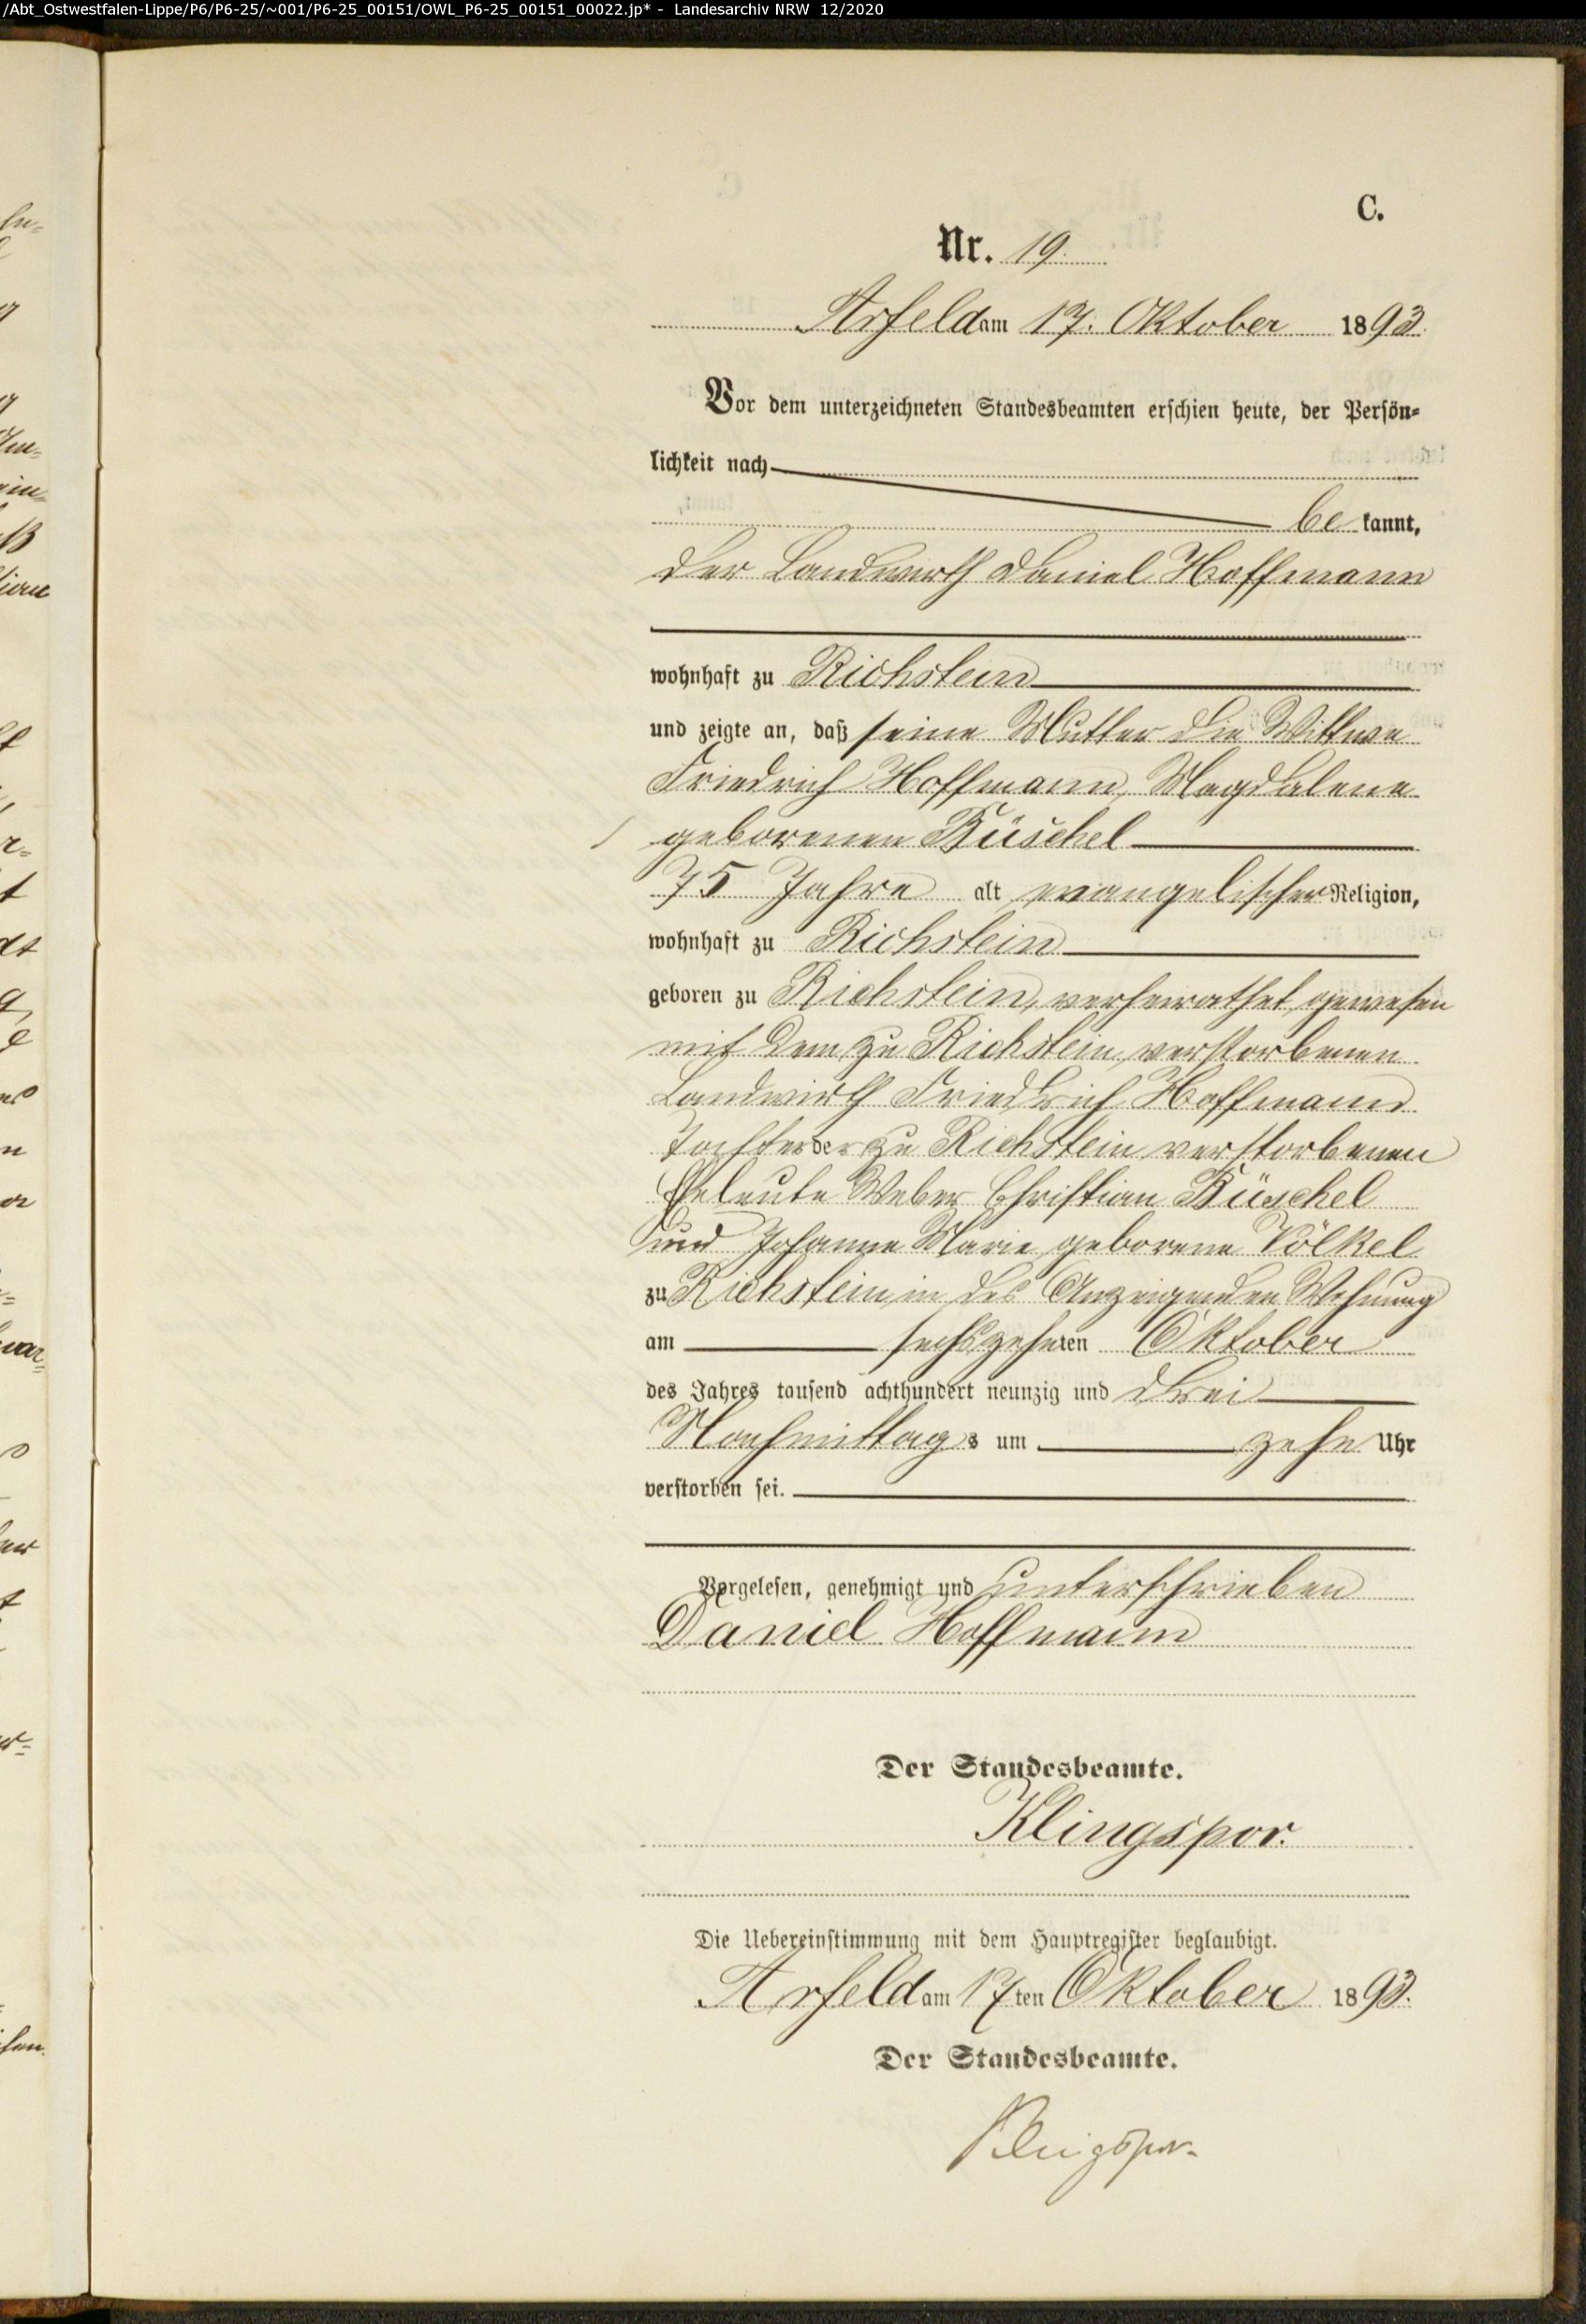 /Abt_Ostwestfalen-Lippe/P6/P6-25/~001/P6-25_00151/OWL_P6-25_00151_00022.jp* - Landesarchiv NRW 12/2020
C.
Nr. 19.
Arfeld am 17. Oktober 1893.
Vor dem unterzeichneten Standesbeamten erschien heute, der Persön-
lichkeit nach
be kannt,
der Landwirth Daniel Hoffmann
wohnhaft zu Richstein
und zeigte an, daß seine Mutter die Wittwe
Friedrich Hoffmann, Magdalene
geborenen Büschel
75 Jahre alt evangelischer Religion,
wohnhaft zu Richstein
geboren zu Richstein, verheirathet gewesen
mit dem zu Richstein verstorbenen
Landwirth Friedrich Hoffmann
Tochter der zu Richstein verstorbenen
Eheleute Weber Christian Büschel
und Johanne Marie geborene Völkel
zu Richstein in des Anzeigenden Wohnung
am sechszehnten Oktober
des Jahres tausend achthundert neunzig und drei
Nachmittags um zehn Uhr
verstorben sei.
Vorgelesen, genehmigt und unterschrieben
Daniel Hoffmann
Der Standesbeamte.
Klingspor.
Die Uebereinstimmung mit dem Hauptregister beglaubigt.
Arfeld am 17ten Oktober 1893.
Der Standesbeamte.
Klingspor